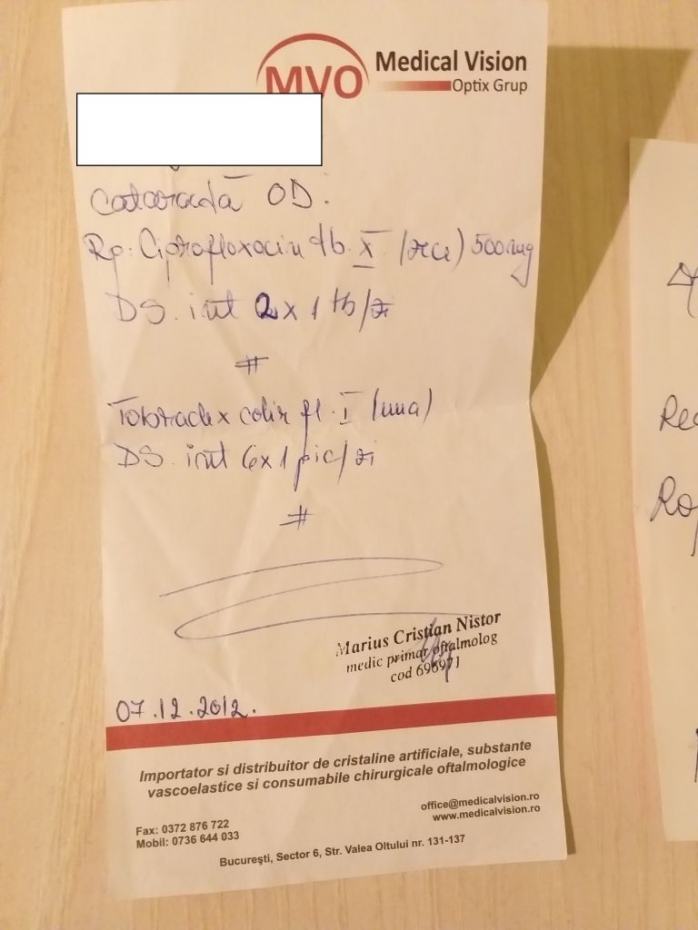 MVO Medical Vision
Optix Grup
Cataractă OD.
Rp: Ciprofloxacin tb. X (zece) 500mg
DS. int 2x1 tb/zi
#
Tobradex colir fl. I (una)
DS. int 6x1 pic/zi
#
Marius Cristian Nistor
medic primar oftalmolog
cod 696971
07.12.2012.
Importator si distribuitor de cristaline artificiale, substante
vascoelastice si consumabile chirurgicale oftalmologice
office@medicalvision.ro
www.medicalvision.ro
Fax: 0372 876 722
Mobil: 0736 644 033
Bucureşti, Sector 6, Str. Valea Oltului nr. 131-137
Rec